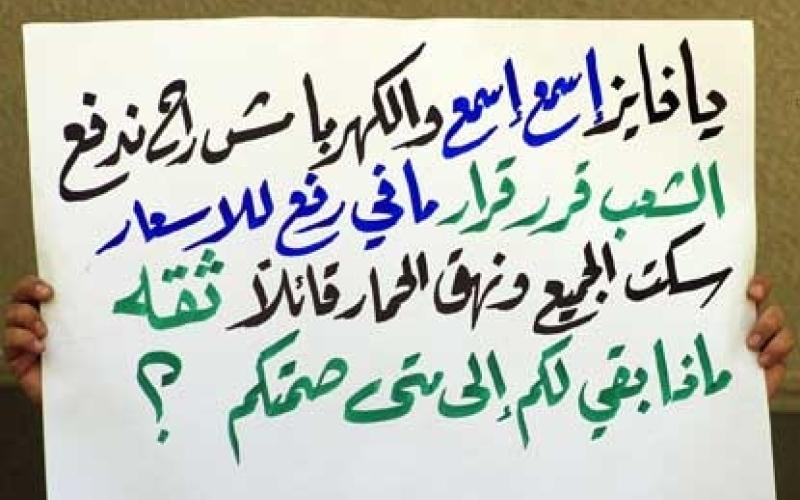 يا فايز إسمع إسمع والكهربا مش راح ندفع
الشعب قرر قرار ما في رفع للاسعار
سكت الجميع ونهق الحمار قائلاً ثقه
ماذا بقي لكم إلى متى صمتكم ؟